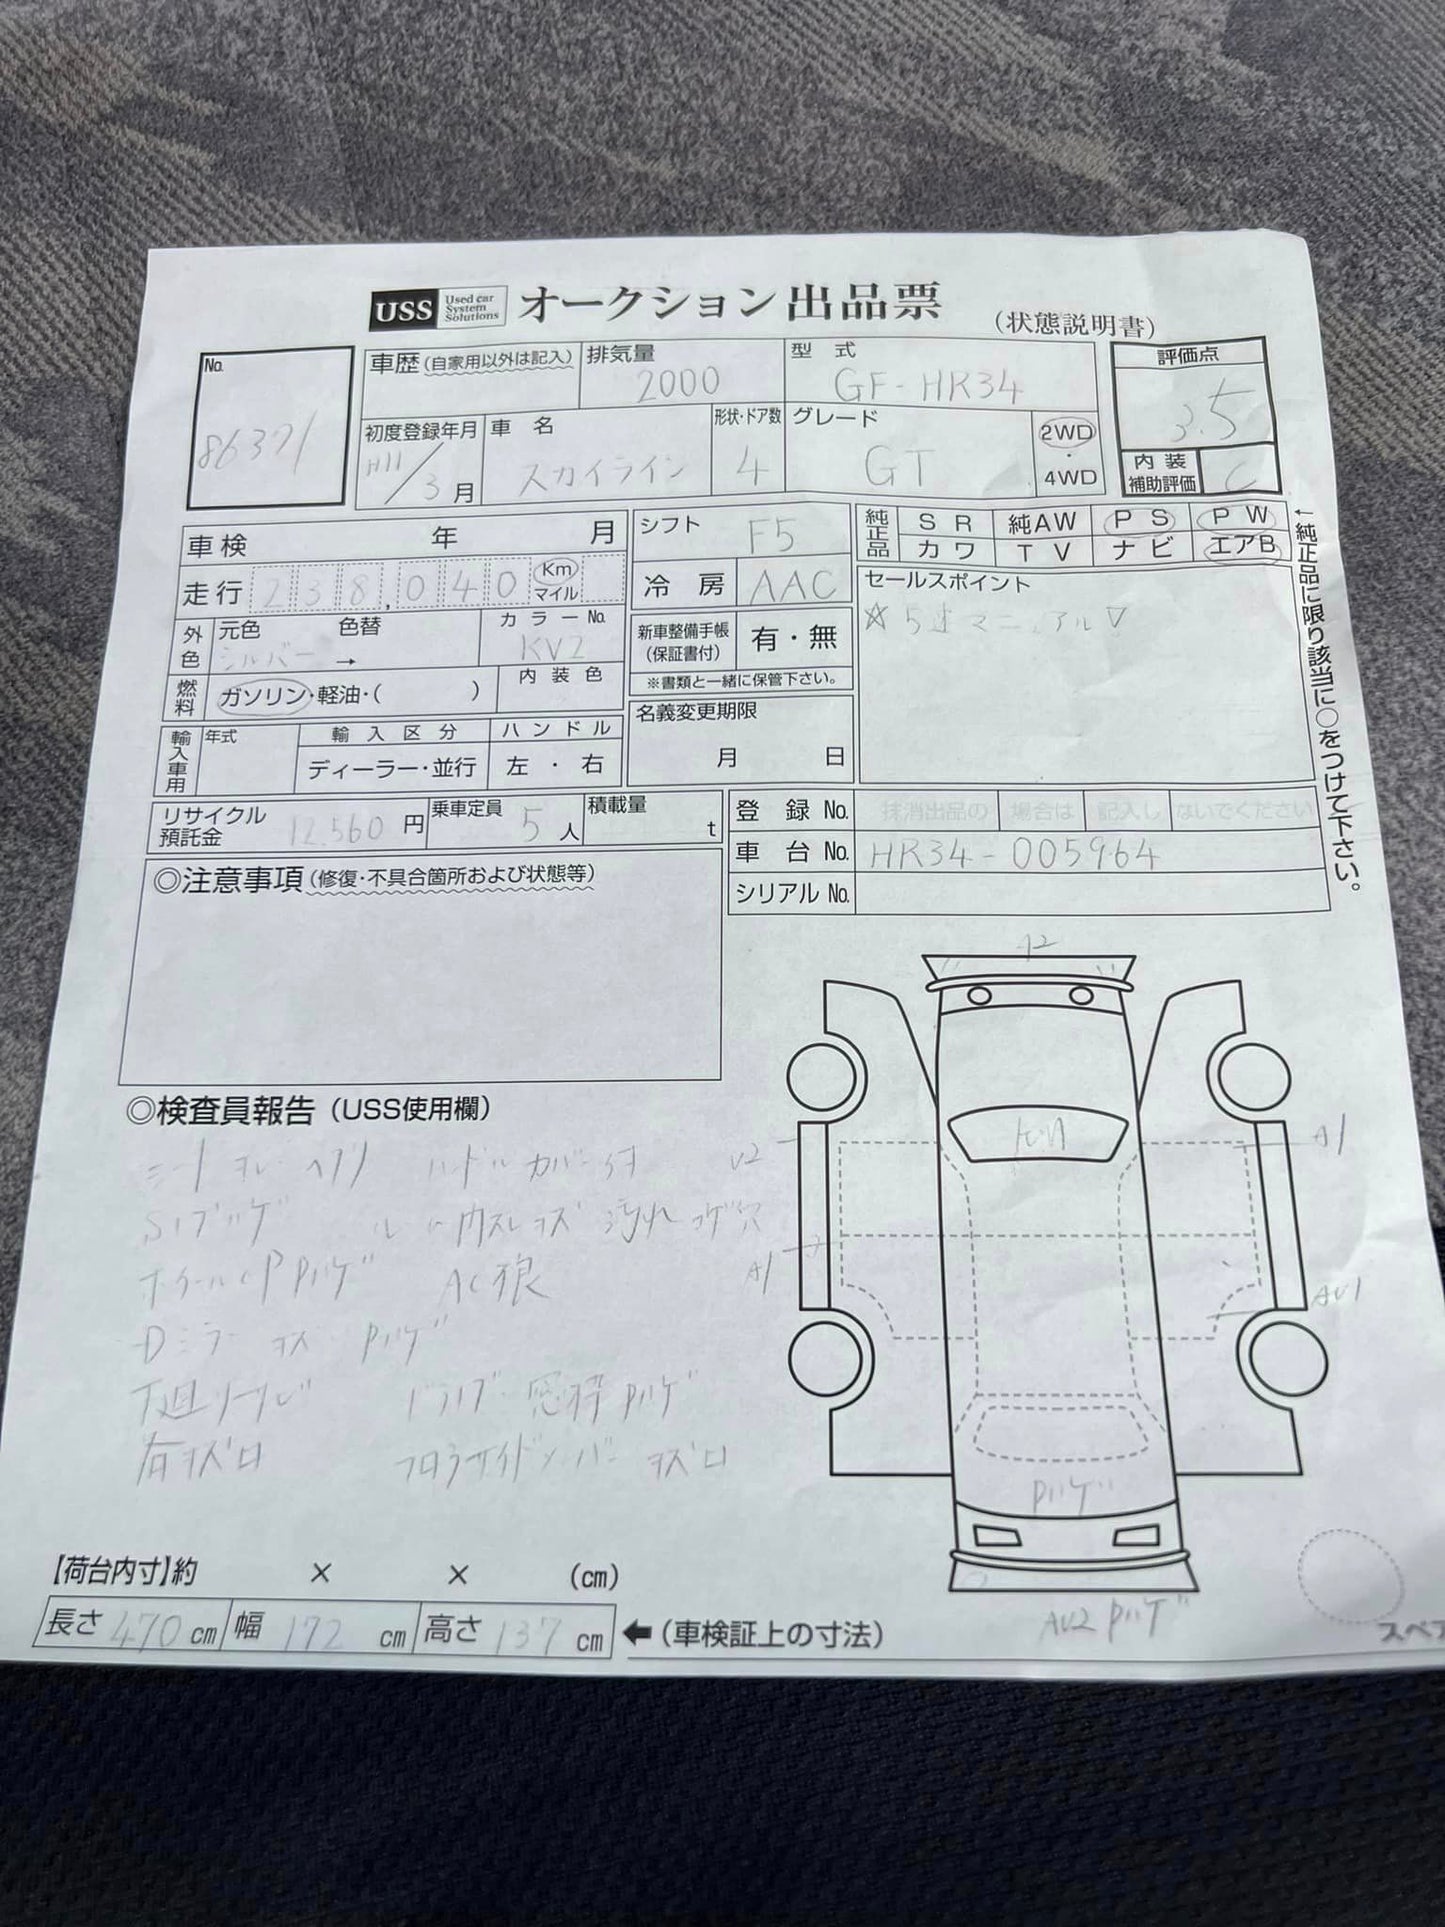 USS Used car System Solutions オークション出品票 (状態説明書)
No. 86371
車歴 (自家用以外は記入) 排気量 2000 型式 GF-HR34 評価点 3.5
初度登録年月 H11/3月 車名 スカイライン 形状・ドア数 4 グレード GT 2WD・4WD 内装補助評価 C
車検 年 月 シフト F5 純正品 SR 純AW PS PW
カワ TV ナビ エアB
走行 238,040 Km マイル 冷房 AAC セールスポイント
☆5速マニュアル▽
外色 元色 シルバー → 色替 カラーNo. KV2 新車整備手帳(保証書付) 有・無
燃料 ガソリン・軽油・( ) 内装色 ※書類と一緒に保管下さい。
輸入車用 年式 輸入区分 ハンドル 名義変更期限
ディーラー・並行 左・右 月 日
↑純正品に限り該当に○をつけて下さい。
リサイクル預託金 12,560円 乗車定員 5人 積載量 t 登録No. 抹消出品の 場合は 記入し ないでください
車台No. HR34-005964
シリアルNo.
◎注意事項(修復・不具合箇所および状態等)
◎検査員報告(USS使用欄)
シートヨレ・ヘタリ ハンドルカバー付
内スレキズ 汚れ コゲ穴
AC狼
Dミラーキズ Pハゲ
下廻り サビ 窓枠Pハゲ
キズ
A1
A1
AU1
Pハゲ
AU2 Pハゲ
【荷台内寸】約 × × (cm)
長さ 470cm 幅 172cm 高さ 137cm ←(車検証上の寸法)
スペア